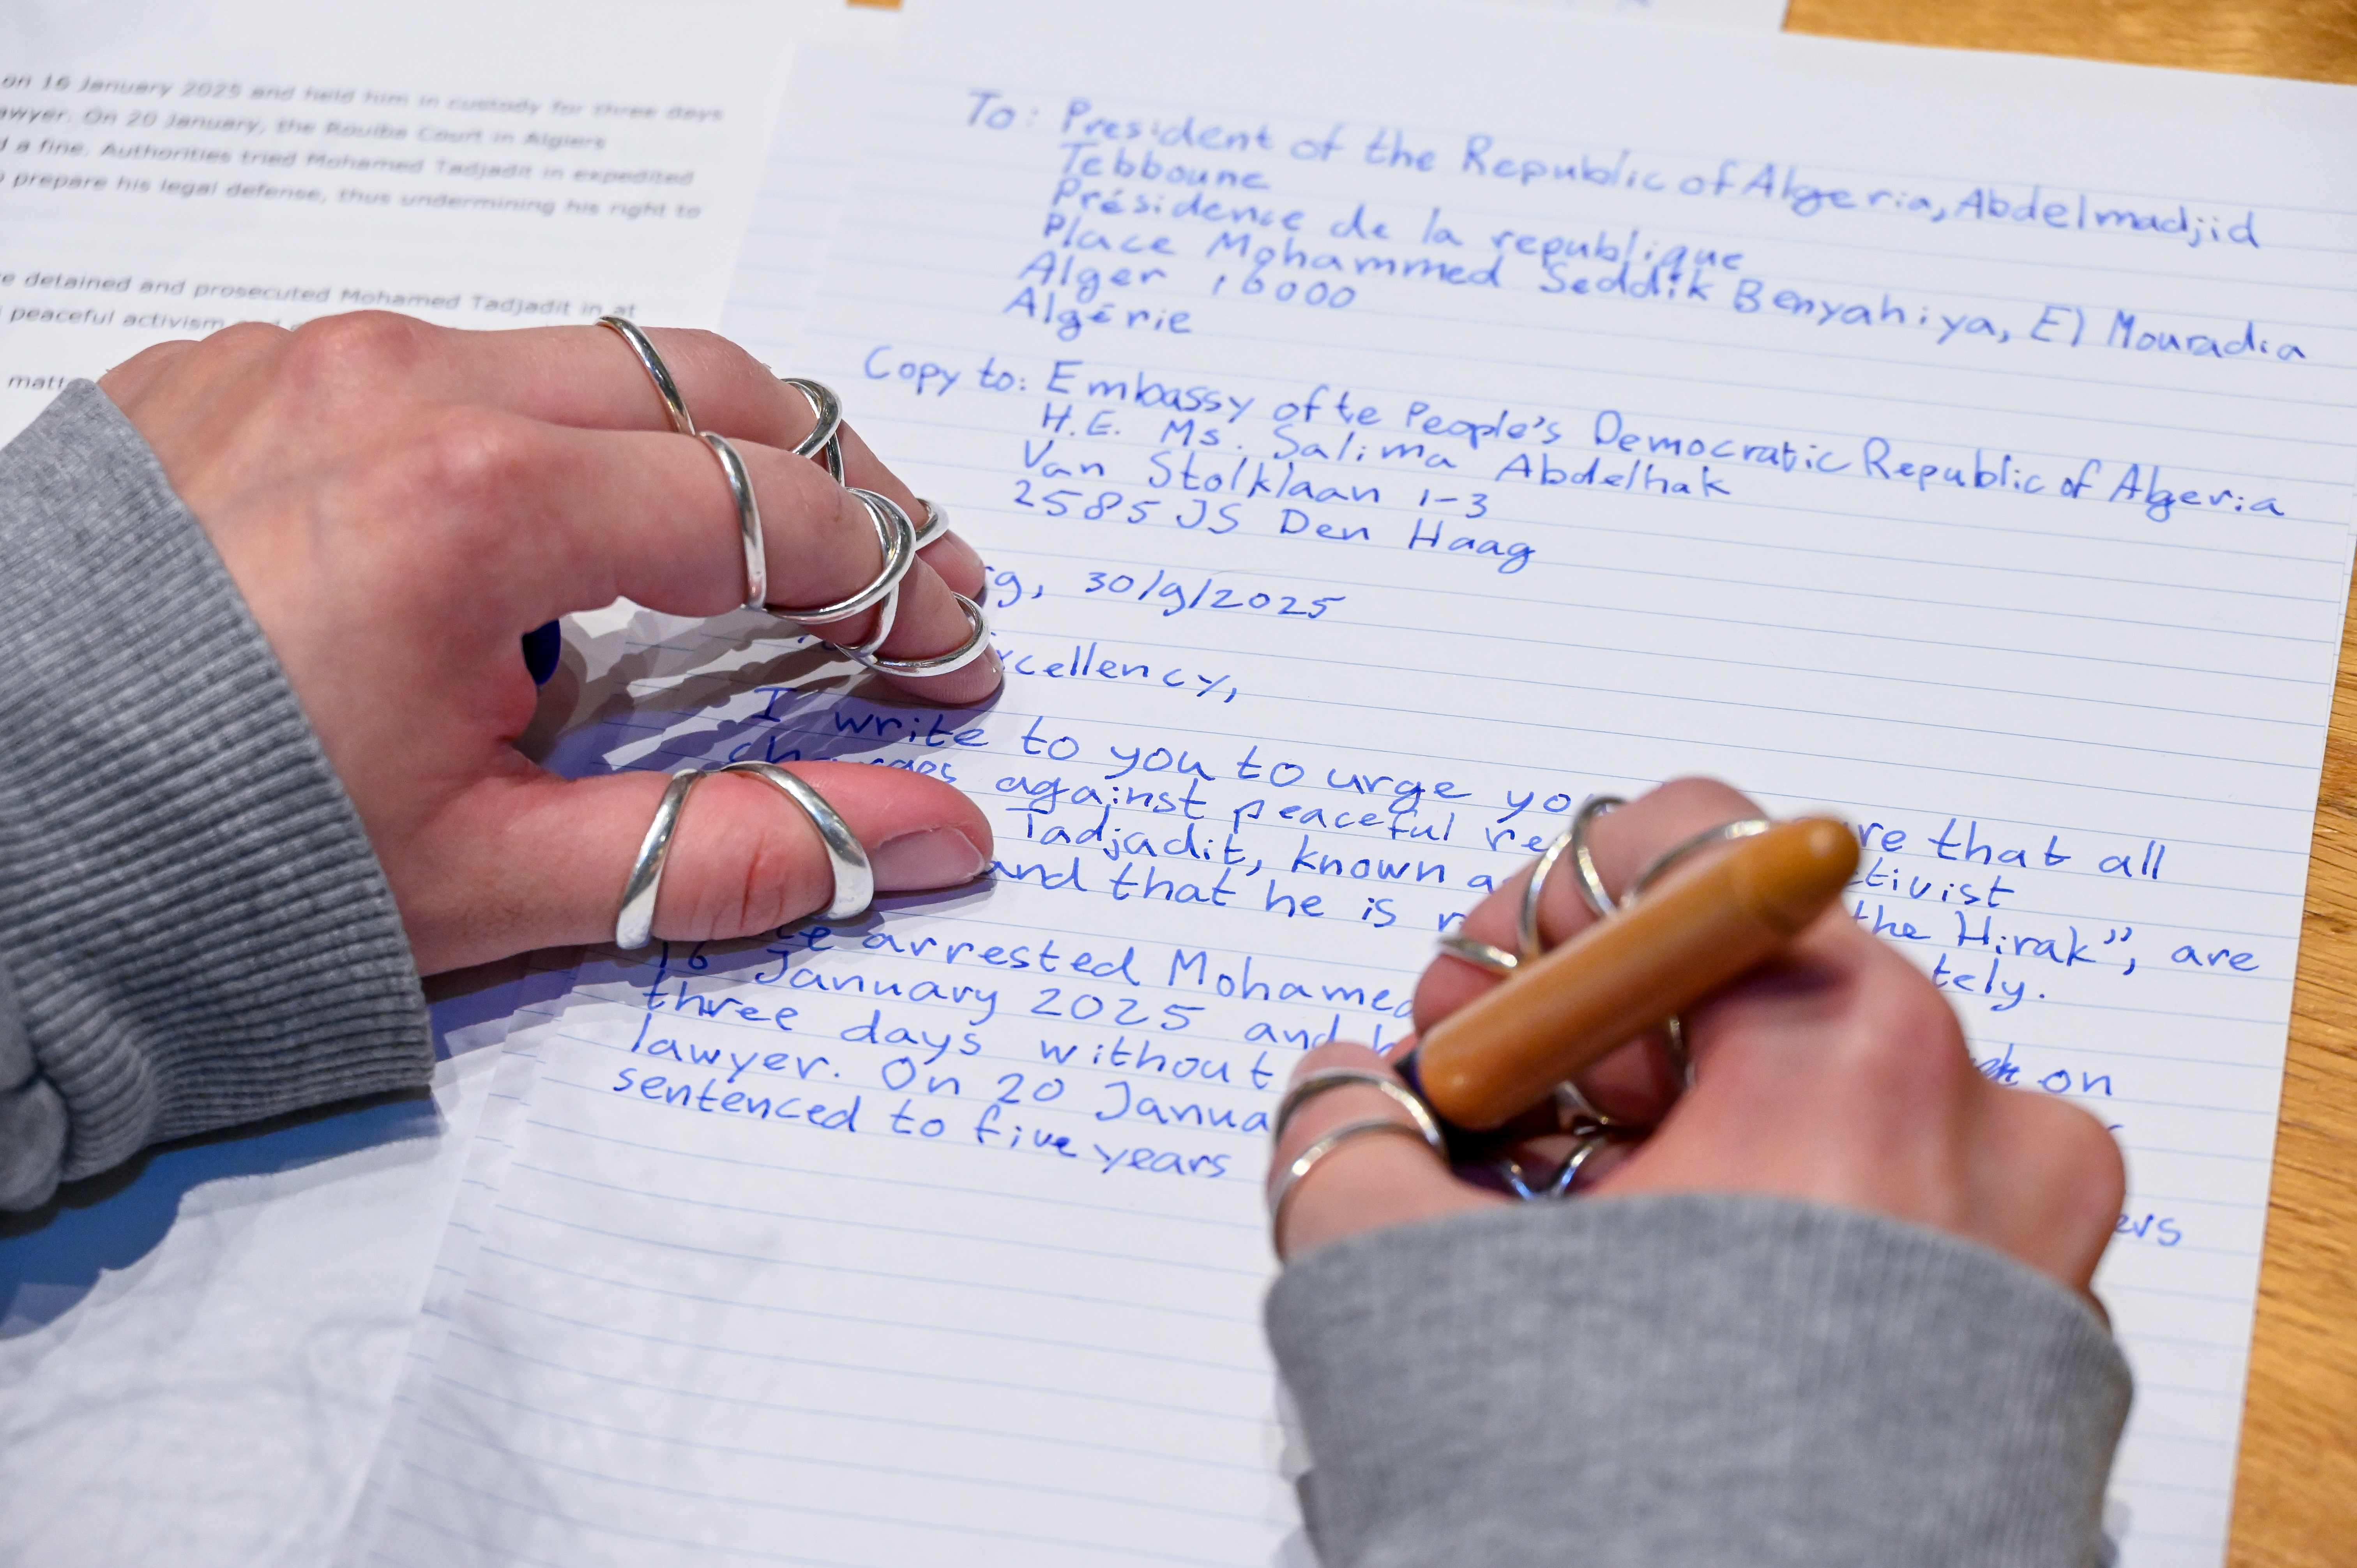 on 16 January 2025 and held him in custody for three days
On 20 January, the Rouiba Court in Algiers
a fine. Authorities tried Mohamed Tadjadit in expedited
prepare his legal defense, thus undermining his right to
detained and prosecuted Mohamed Tadjadit in at
peaceful activism
To: President of the Republic of Algeria, Abdelmadjid
Tebboune
Présidence de la republique
Place Mohammed Seddik Benyahiya, El Mouradia
Alger 16000
Algérie
Copy to: Embassy of te People's Democratic Republic of Algeria
H.E. Ms. Salima Abdelhak
Van Stolklaan 1-3
2585 JS Den Haag
30/9/2025
I write to you to urge that all
charges against peaceful
Tadjadit, known the Hirak", are
and that he is
arrested Mohamed
16 January 2025 and on
three days without
lawyer. On 20
sentenced to five years